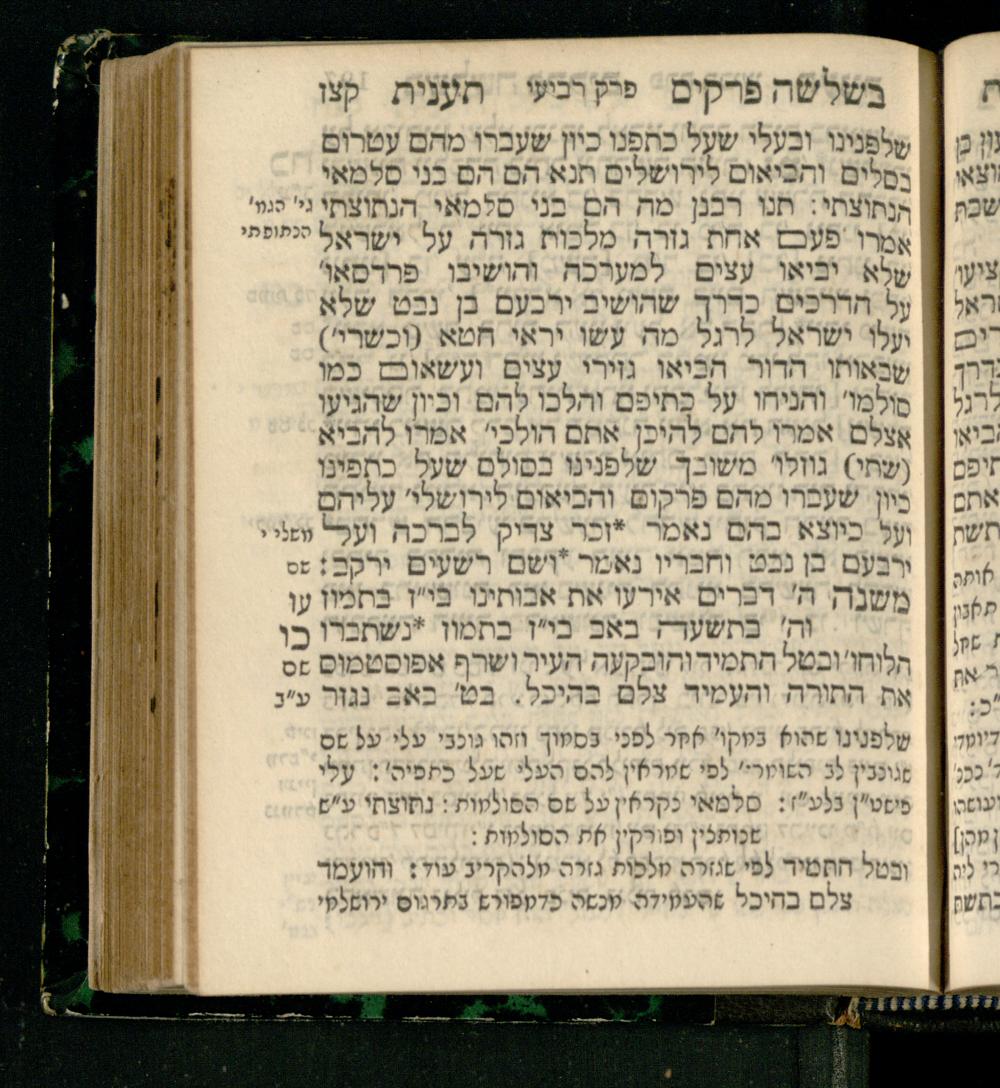 בשלשה פרקים פרק רביעי תענית קצז
שלפנינו ובעלי שעל כתפנו כיון שעברו מהם עטרום
בסלים והביאום לירושלים תנא הם הם בני סלמאי
הנתוצתי: תנו רבנן מה הם בני סלמאי הנתוצתי גי' הגמ'
אמרו פעם אחת גזרה מלכות גזרה על ישראל הנתופתי
שלא יביאו עצים למערכה והושיבו פרדסאו'
על הדרכים כדרך שהושיב ירבעם בן נבט שלא
יעלו ישראל לרגל מה עשו יראי חטא (וכשרי')
שבאותו הדור הביאו גזירי עצים ועשאום כמו
סולמו' והניחו על כתיפם והלכו להם וכיון שהגיעו
אצלם אמרו להם להיכן אתם הולכי' אמרו להביא
(שתי) גוזלו' משובך שלפנינו בסולם שעל כתפינו
כיון שעברו מהם פרקום והביאום לירושלי' עליהם
ועל כיוצא בהם נאמר *זכר צדיק לברכה ועל משלי י
ירבעם בן נבט וחבריו נאמר *ושם רשעים ירקב: שם
משנה ה' דברים אירעו את אבותינו בי"ז בתמוז עו
וה' בתשעה באב בי"ז בתמוז *נשתברו כו
הלוחו' ובטל התמיד והובקעה העיר ושרף אפוסטמוס שם
את התורה והעמיד צלם בהיכל. בט' באב נגזר ע"ב
שלפנינו שהוא במקו' אחר לפני בסמוך וזהו גונבי עלי על שם
שגונבין לב השומרי' לפי שמראין להם העלי שעל כתפיה': עלי
פישט"ן בלע"ז: סלמאי נקראין על שם הסולמות: נתוצתי ע"ש
שנותצין ופורקין את הסולמות:
ובטל התמיד לפי שגזרה מלכות גזרה מלהקריב עוד: והועמד
צלם בהיכל שהעמידה מנשה כדמפורש בתרגום ירושלמי